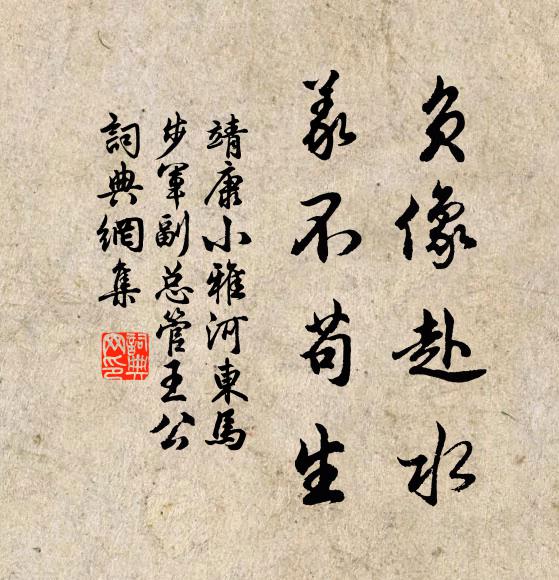 負像赴水
義不苟生
靖康小雅河東馬
步軍副总管王公
詞典網集
詞典
网印